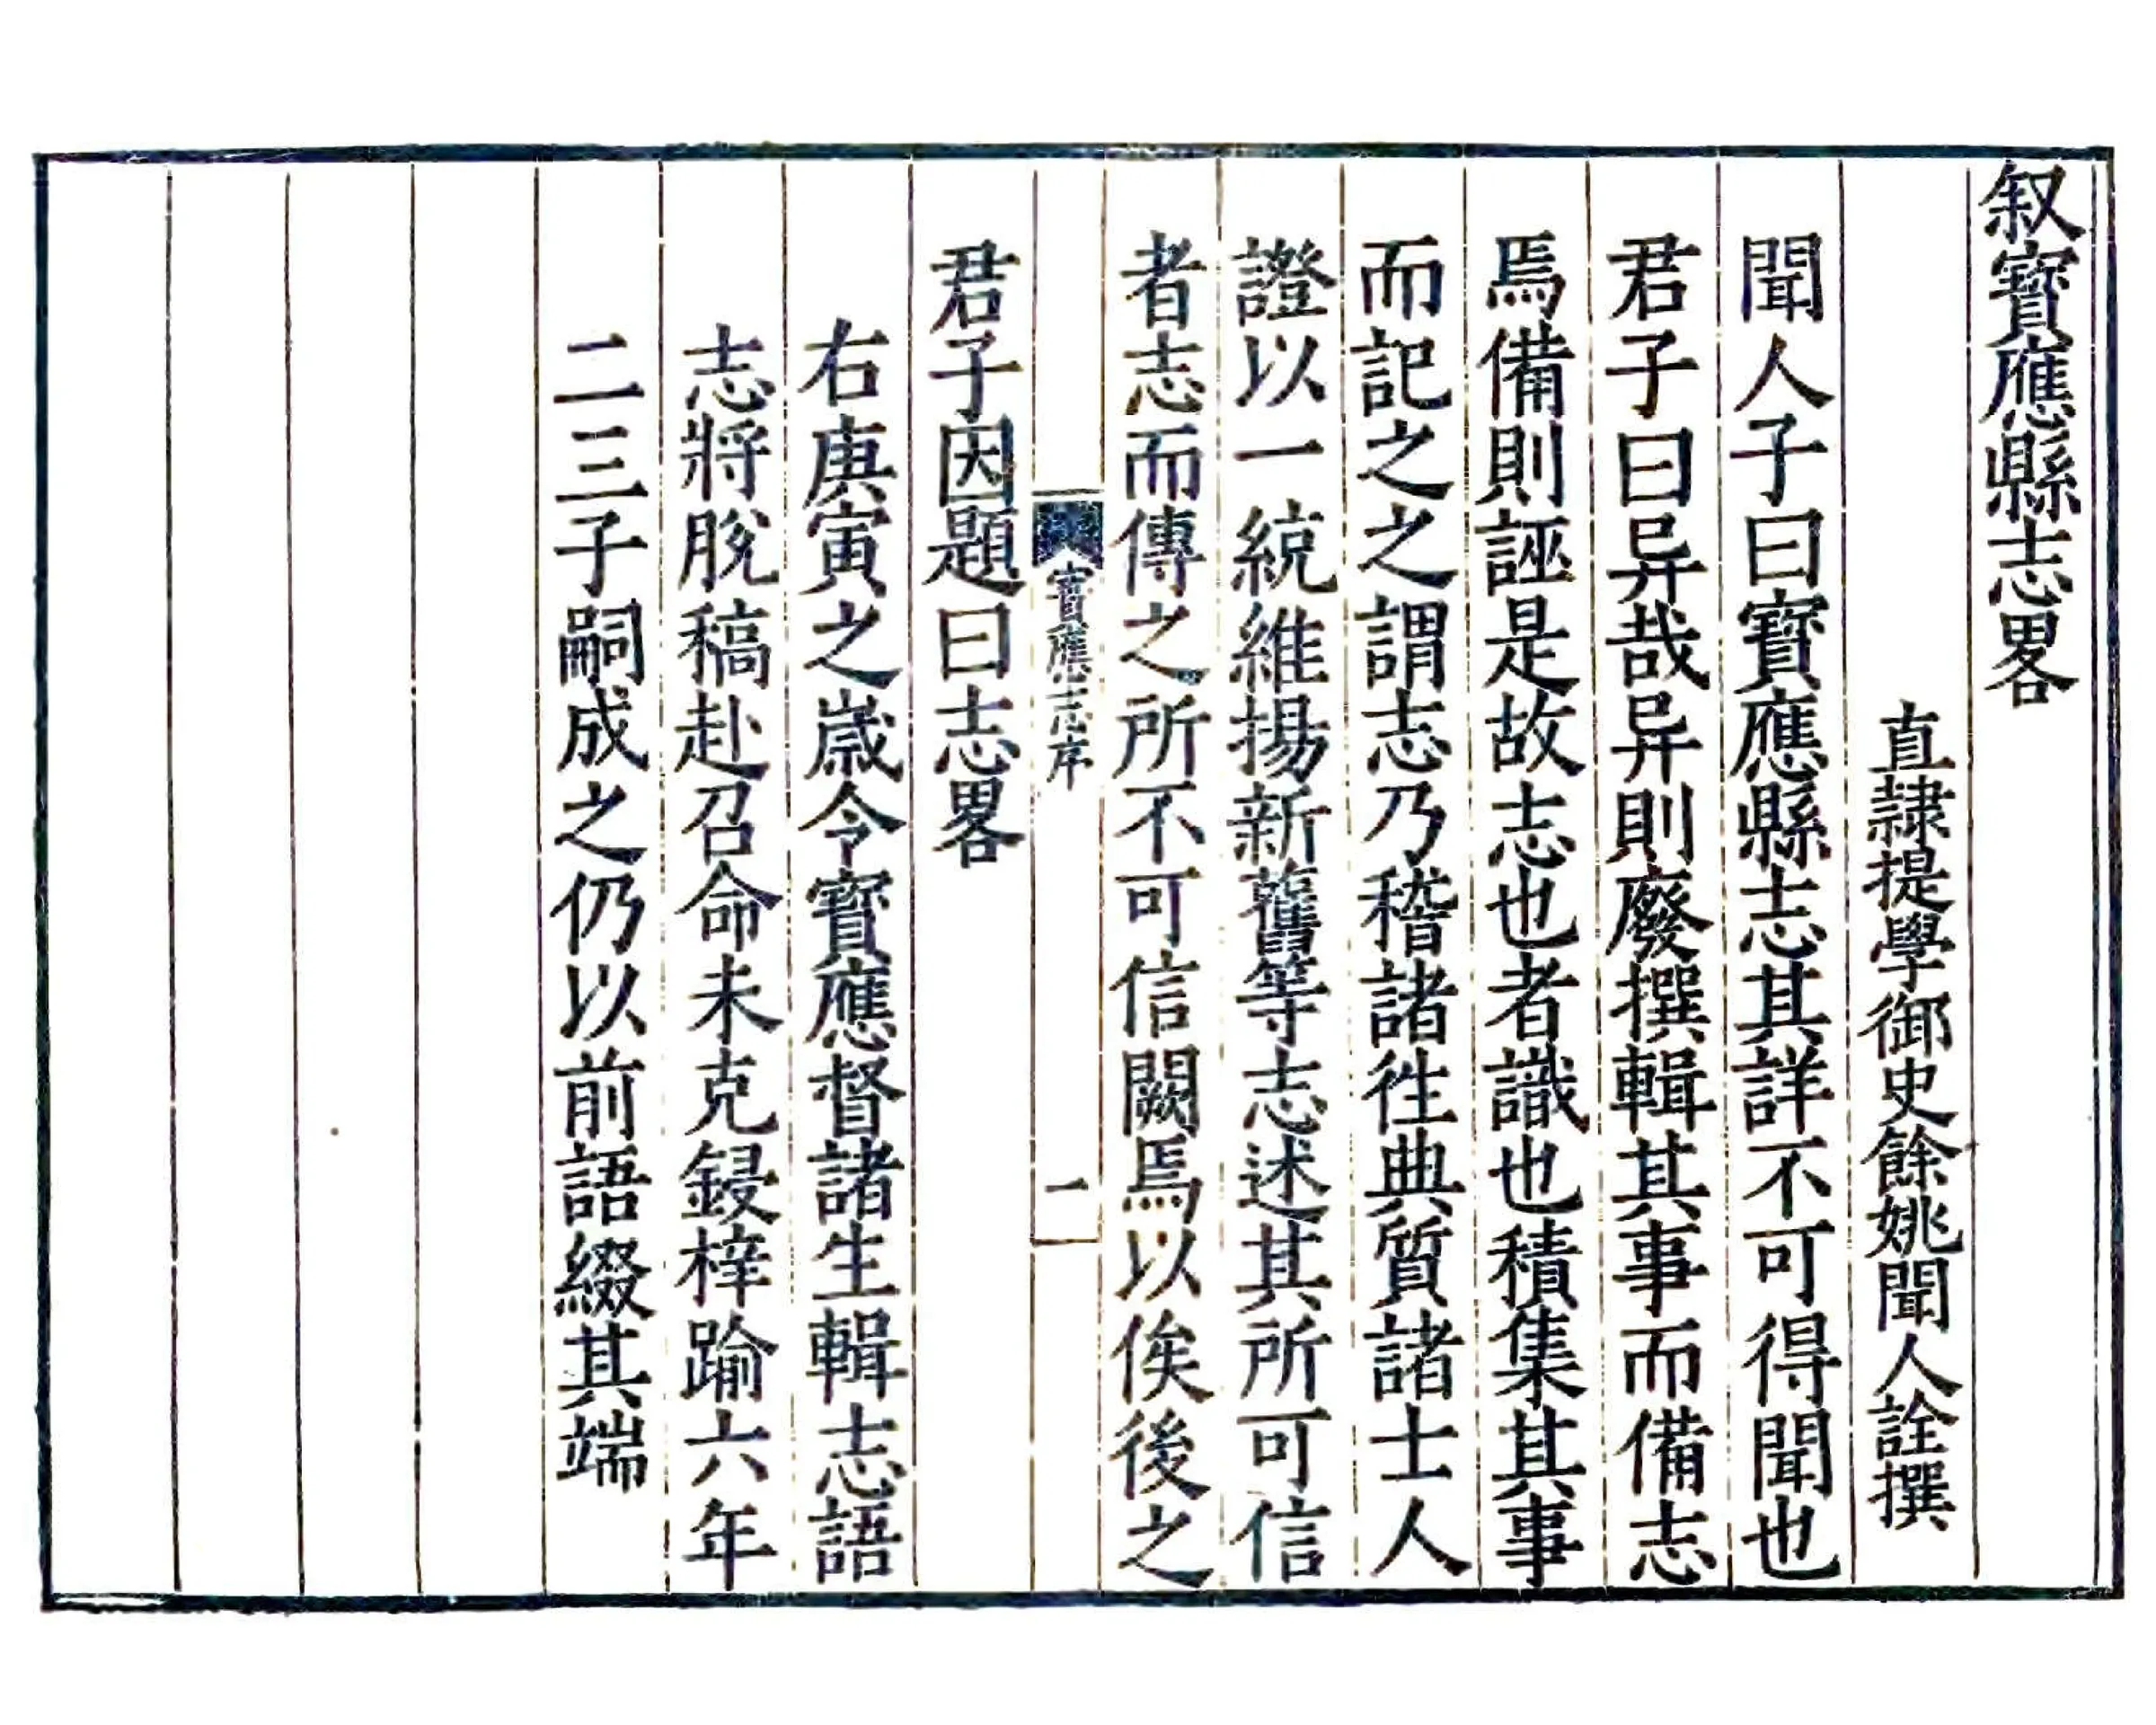 叙寶應縣志畧
直隷提學御史餘姚聞人詮撰
聞人子曰寶應縣志其詳不可得聞也
君子曰异哉异則廢撰輯其事而備志
焉備則誣是故志也者識也積集其事
而記之之謂志乃稽諸徃典質諸士人
證以一統維揚新舊等志述其所可信
者志而傳之所不可信闕焉以俟後之
寶應志序
二
君子因題曰志畧
右庚寅之嵗令寶應督諸生輯志語
志將脫稿赴召命未克鋟梓踰六年
二三子嗣成之仍以前語綴其端